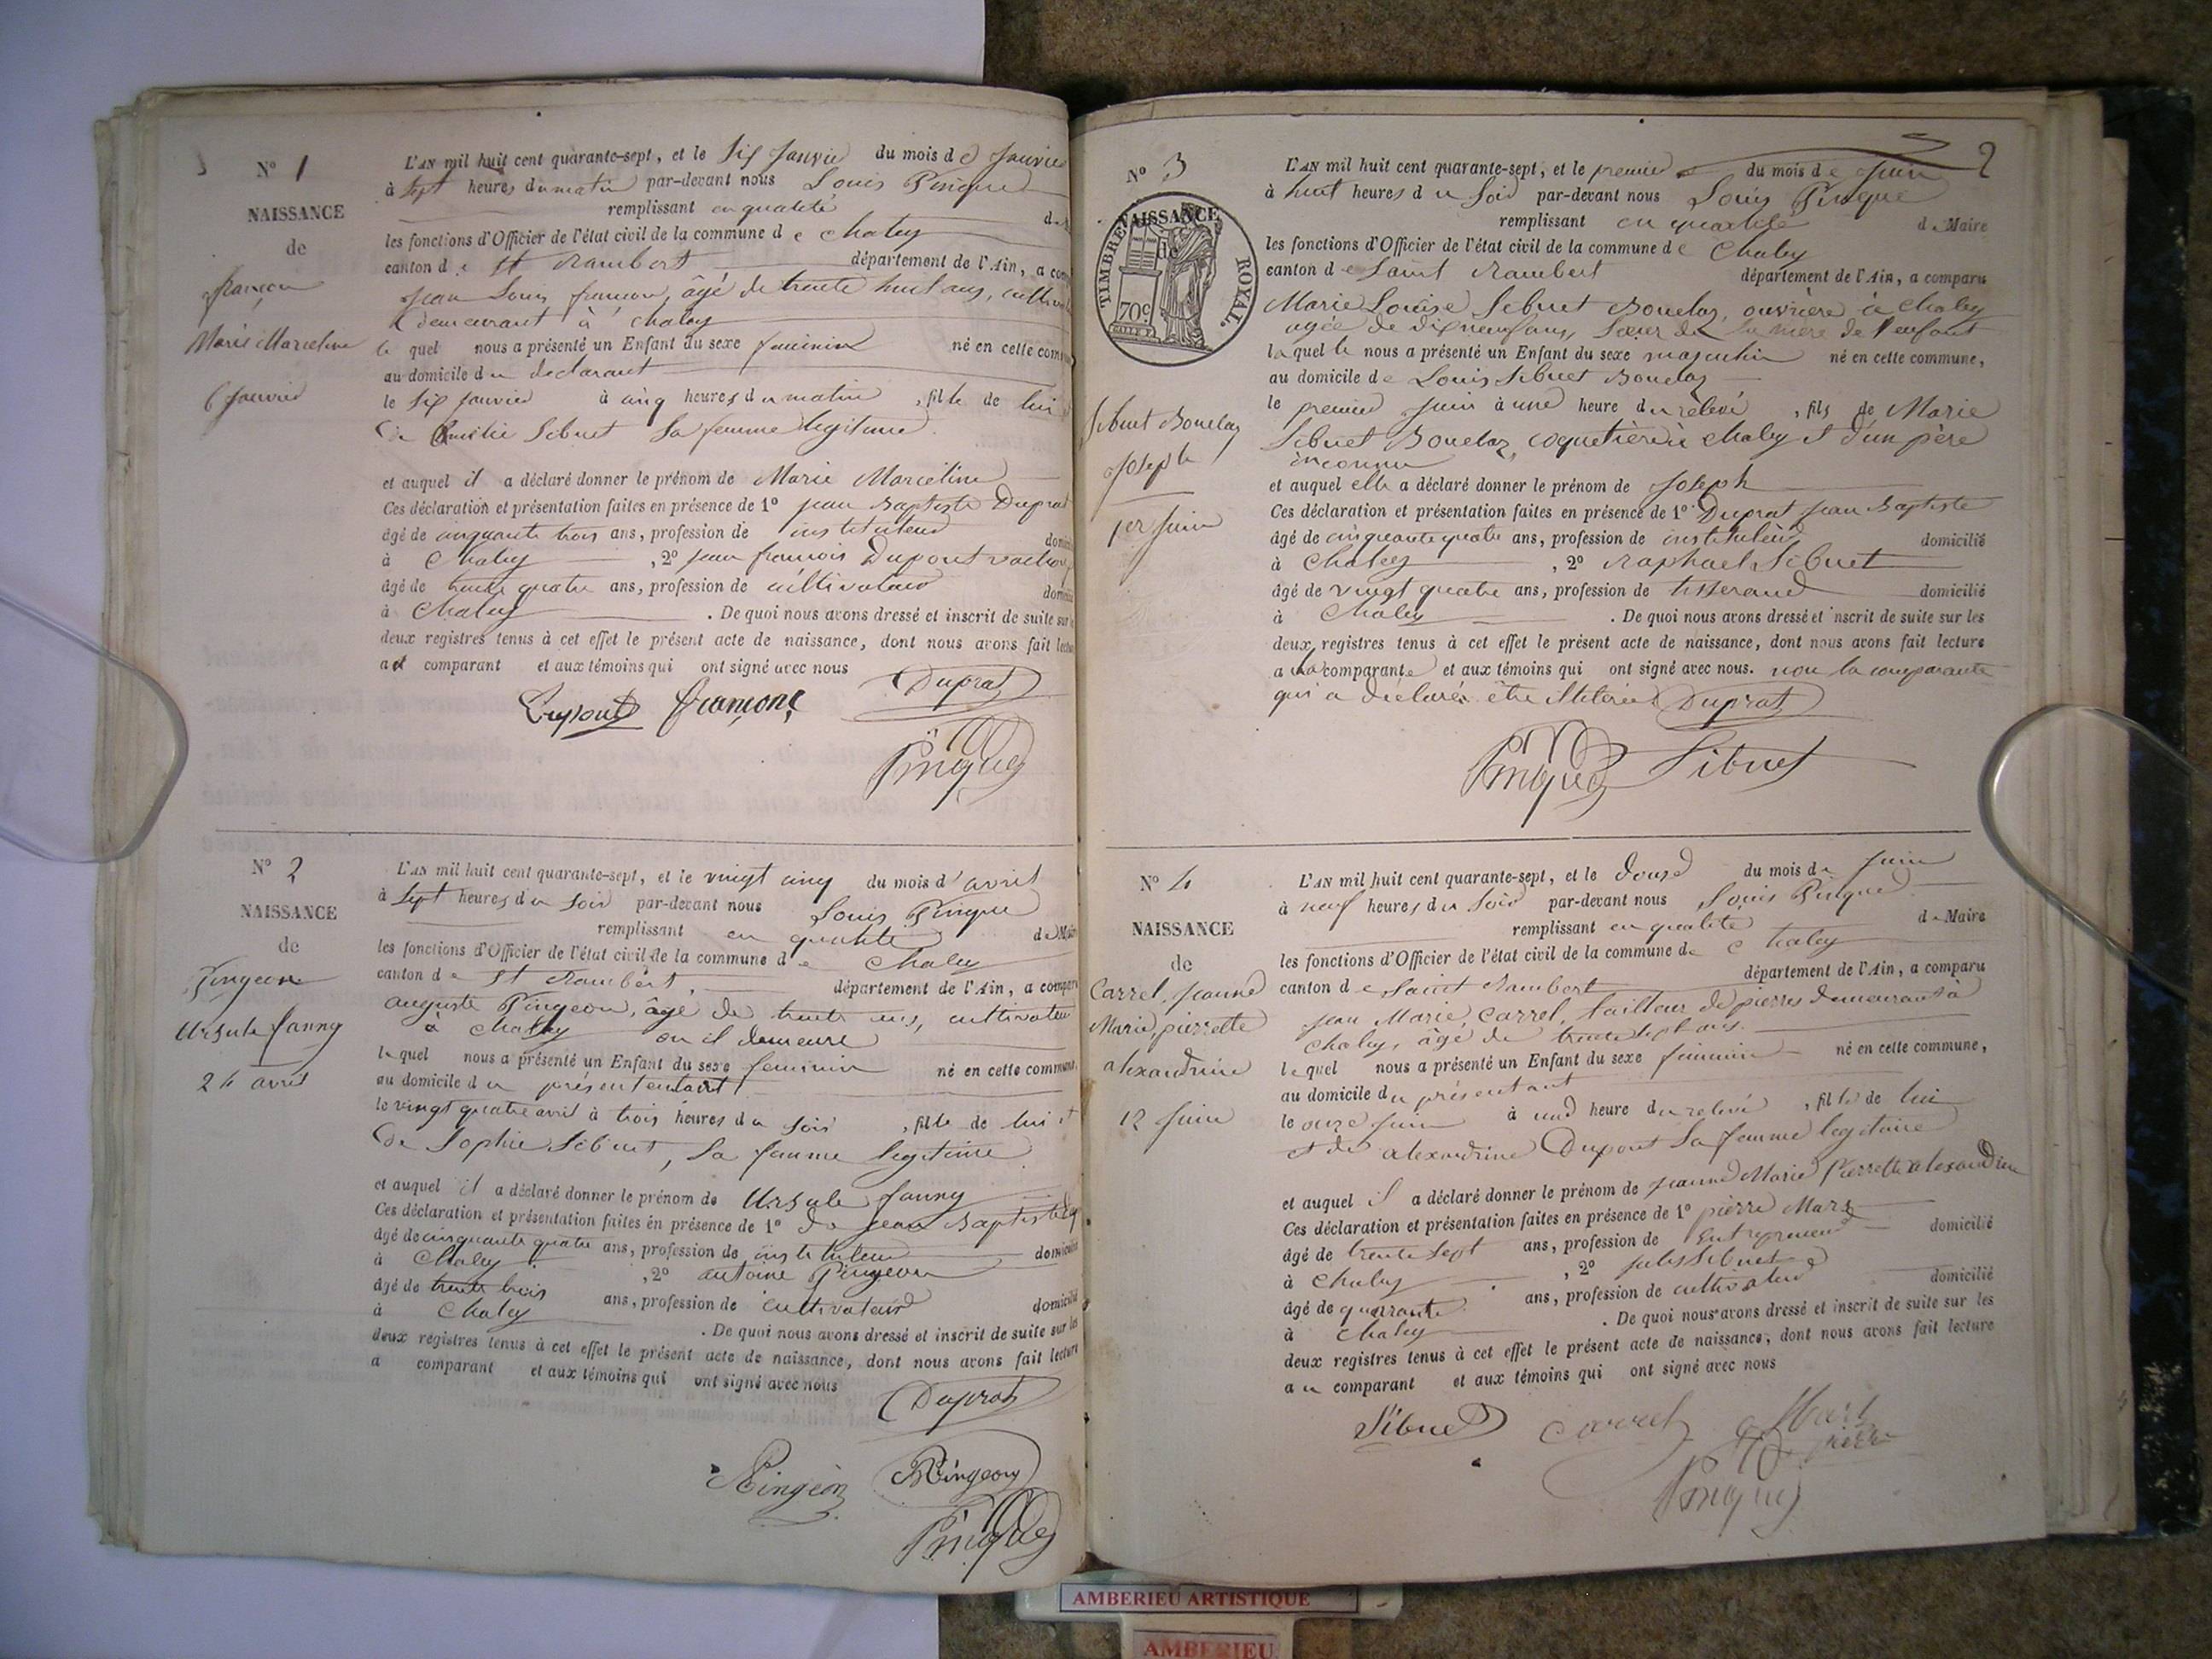 N° 1
NAISSANCE
de
françon
Marie Marceline
6 Janvier
L'AN mil huit cent quarante-sept, et le Six Janvier du mois de Janvier
à Sept heures du matin par-devant nous Louis Pingue
remplissant en qualité
les fonctions d'Officier de l'état civil de la commune de Chaley
canton de St Rambert département de l'Ain, a comp
jean Louis françon, âgé de trente huit ans, cultiva
demeurant à chaley
le quel nous a présenté un Enfant du sexe feminin né en cette comm
au domicile du declarant
le Six janvier à cinq heures du matin, fille de lui
Sibuet Sa femme legitime
et auquel il a déclaré donner le prénom de Marie Marceline
Ces déclaration et présentation faites en présence de 1° jean Baptiste Duprat
âgé de cinquante trois ans, profession de instituteur domi
à Chaley, 2° jean francois Dupont
âgé de trente quatre ans, profession de cultivateur domi
à Chaley. De quoi nous avons dressé et inscrit de suite sur
deux registres tenus à cet effet le présent acte de naissance, dont nous avons fait lectu
au comparant et aux témoins qui ont signé avec nous
Duprat
Dupont françon
Pingue
N° 2
NAISSANCE
de
Pingeon
Ursule fanny
24 avril
L'AN mil huit cent quarante-sept, et le vingt cinq du mois d'avril
à Sept heures du Soir par-devant nous Louis Pingue
remplissant en qualité de Maire
les fonctions d'Officier de l'état civil de la commune de Chaley
canton de St Rambert, département de l'Ain, a comparu
auguste Pingeon, âgé de trente ans, cultivateur
à Chaley ou il demeure
le quel nous a présenté un Enfant du sexe feminin né en cette commune
au domicile du présententant
le vingt quatre avril à trois heures du Soir, fille de lui et
de Sophie Sibuet, Sa femme legitime
et auquel il a déclaré donner le prénom de Ursule fanny
Ces déclaration et présentation faites en présence de 1° jean Baptiste
âgé de cinquante quatre ans, profession de instituteur domicilié
à Chaley, 2° antoine Pingeon
âgé de trente trois ans, profession de cultivateur domicilié
à Chaley. De quoi nous avons dressé et inscrit de suite sur les
deux registres tenus à cet effet le présent acte de naissance, dont nous avons fait lecture
a comparant et aux témoins qui ont signé avec nous
Duprat
Pingeon Pingeon
Pingue
2
N° 3
NAISSANCE
de
TIMBRE ROYAL.
70c
Sibuet Bouelaz
Joseph
1er juin
L'AN mil huit cent quarante-sept, et le premier du mois de Juin
à huit heures du Soir par-devant nous Louis Pingue
remplissant en qualité de Maire
les fonctions d'Officier de l'état civil de la commune de Chaley
canton de Saint Rambert département de l'Ain, a comparu
Marie Louise Sibuet Bouelaz, ouvrière à Chaley
agée de dix neuf ans, Soeur de la mère de l'enfant
laquelle nous a présenté un Enfant du sexe masculin né en cette commune,
au domicile de Louis Sibuet Bouelaz
le premier juin à une heure du relevé, fils de Marie
Sibuet Bouelaz, coquetière à Chaley et d'un père
inconnu
et auquel elle a déclaré donner le prénom de Joseph
Ces déclaration et présentation faites en présence de 1° Duprat jean Baptiste
âgé de cinquante quatre ans, profession de instituteur domicilié
à Chaley, 2° Raphael Sibuet
âgé de vingt quatre ans, profession de tisserand domicilié
à Chaley. De quoi nous avons dressé et inscrit de suite sur les
deux registres tenus à cet effet le présent acte de naissance, dont nous avons fait lecture
a la comparante et aux témoins qui ont signé avec nous. non la comparante
qui a declaré être illiterée Duprat
Pingue Sibuet
N° 4
NAISSANCE
de
Carrel, jeanne
Marie, pierrette
alexandrine
12 juin
L'AN mil huit cent quarante-sept, et le douze du mois de juin
à neuf heures du Soir par-devant nous Louis Pingue
remplissant en qualité de Maire
les fonctions d'Officier de l'état civil de la commune de Chaley
canton de Saint Rambert département de l'Ain, a comparu
jean Marie, Carrel, tailleur de pierres demeurant à
Chaley, âgé de trente Sept ans.
lequel nous a présenté un Enfant du sexe feminin né en cette commune,
au domicile du présentant
le onze juin à une heure du relevé, fille de lui
et de alexandrine Dupont Sa femme legitime
et auquel il a déclaré donner le prénom de jeanne Marie Pierrette alexandrine
Ces déclaration et présentation faites en présence de 1° pierre Mars
âgé de trente Sept ans, profession de Entrepreneur domicilié
à Chaley, 2° jules Sibuet
âgé de quarrante ans, profession de cultivateur domicilié
à Chaley. De quoi nous avons dressé et inscrit de suite sur les
deux registres tenus à cet effet le présent acte de naissance, dont nous avons fait lecture
au comparant et aux témoins qui ont signé avec nous
Sibuet Carrel
Pingue
AMBERIEU ARTISTIQUE
AMBERIEU